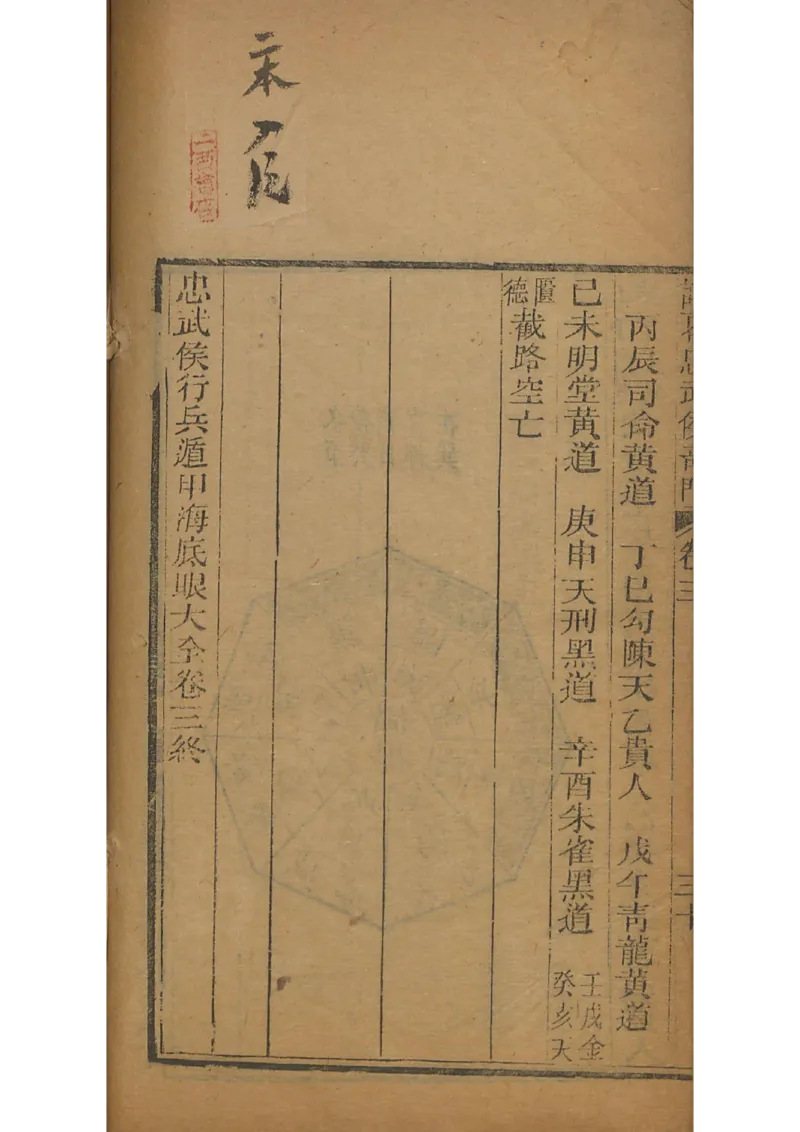 諸葛忠武侯奇門 卷三 三十
丙辰司命黃道 丁巳勾陳天乙貴人 戊午青龍黃道
己未明堂黃道 庚申天刑黑道 辛酉朱雀黑道 壬戌金
癸亥天
匱
德
截路空亡
忠武侯行兵遁甲海底眼大全卷三終